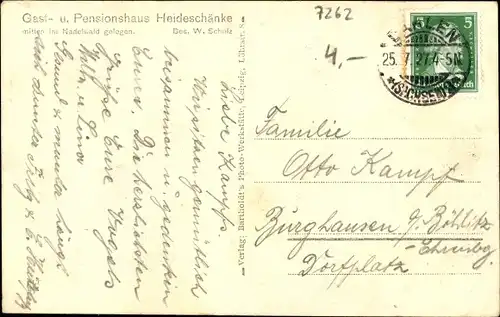 Gast- u. Pensionshaus Heideschänke
mitten im Nadelwald gelegen.
Bes. W. Scholz
7262
4,-
5
5
DAHLEN
25. 7. 27. 4-5N.
*(SACHSEN)
Liebe Kampfs.
Wir sitzen gemütlich
beisammen u. gedenken
Eurer. Die herzlichsten
Grüße Eure Vogels
Verlag: Barthold's Photo-Werkstätte, Leipzig, Löhrstr.
Familie
Otto Kampf
Burghausen b/ Böhlitz
Ehrenbg
Dorfplatz